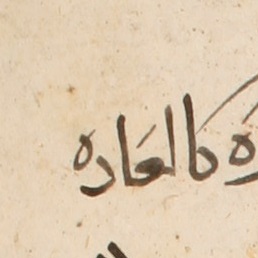 كالعاده